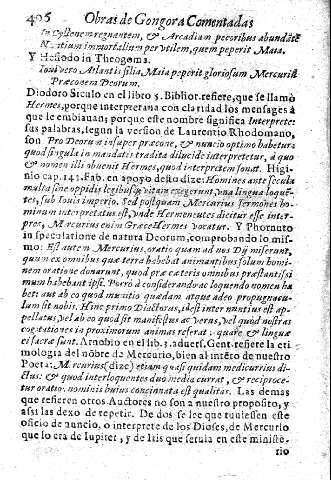 406 Obras de Gongora Comentadas
In Cyllenem regnantem, & Arcadiam pecoribus abundātē
Nuntium immortalium per vtilem, quem peperit Maia.
Y Hesiodo in Theogonia.
Ioui vero Atlantis filia Maia peperit gloriosum Mercuriū
Præconem Deorum.
Diodoro Siculo en el libro 5. Bibliot. refiere, que se llamò
Hermes, porque interpretana con claridad los mensages à
que le embiauan; porque este nombre significa Interprete:
sus palabras, segun la version de Laurentio Rhodomano,
son Pro Deorum insuper præcone, & nuncio optimo habetura
quod singula in mandatis tradita dilucide interpretetur, à quo
& nomen illi obuenit Hermes, quod interpretem sonat. Higi-
nio cap. 143. Fab. en apoyo desto dize: Homines ante secula
multa sine oppidis legibusq; vitam exegerunt, vna lingua loquē-
tes, sub Iouis imperio. Sed postquam Mercurius sermones ho-
minum interpretatus est, vnde Hermeneutes dicitur esse inter-
pres, Mercurius enim Græce Hermes vocatur. Y Phornuto
in speculatione de natura Deorum, comprobando lo mis-
mo: Est autem Mercurius, oratio quam ad nos Dij miserunt,
quum ex omnibus quæ terra habebat animantibus solum homi-
nem oratione donarunt, quod præ cæteris omnibus præstantissi
mum habebant ipsi. Porrò à considerando ac loquendo nomen ha
bet: aut ab eo quod munitio quædam atque adeo propugnacu-
lum sit nobis. Hinc primo Diactorus, id est internuntius est ap-
pellatus, vel ab eo quod sit manifestus ac verus, vel quod nostras
cogitationes in proximorum animas referat: quare, & linguæ
ei sacræ sunt. Arnobio en el lib. 3. aduers. Gent. refiere la eti
mologia del nōbre de Mercurio, bien al intēto de nuestro
Poeta: Mercurius (dize) etiam quasi quidam medicurrius di-
ctus: & quod interloquentes duo media currat, & reciproce-
tur oratio, nominis huius concinnata est qualitas. Las demas
que refieren otros Auctores no son a nuestro proposito, y
assi las dexo de repetir. De dos se lee que tuuiessen este
oficio de auncio, o interprete de los Dioses, de Mercurio
que lo era de Iupiter, y de Iris que seruia en este ministe-
rio